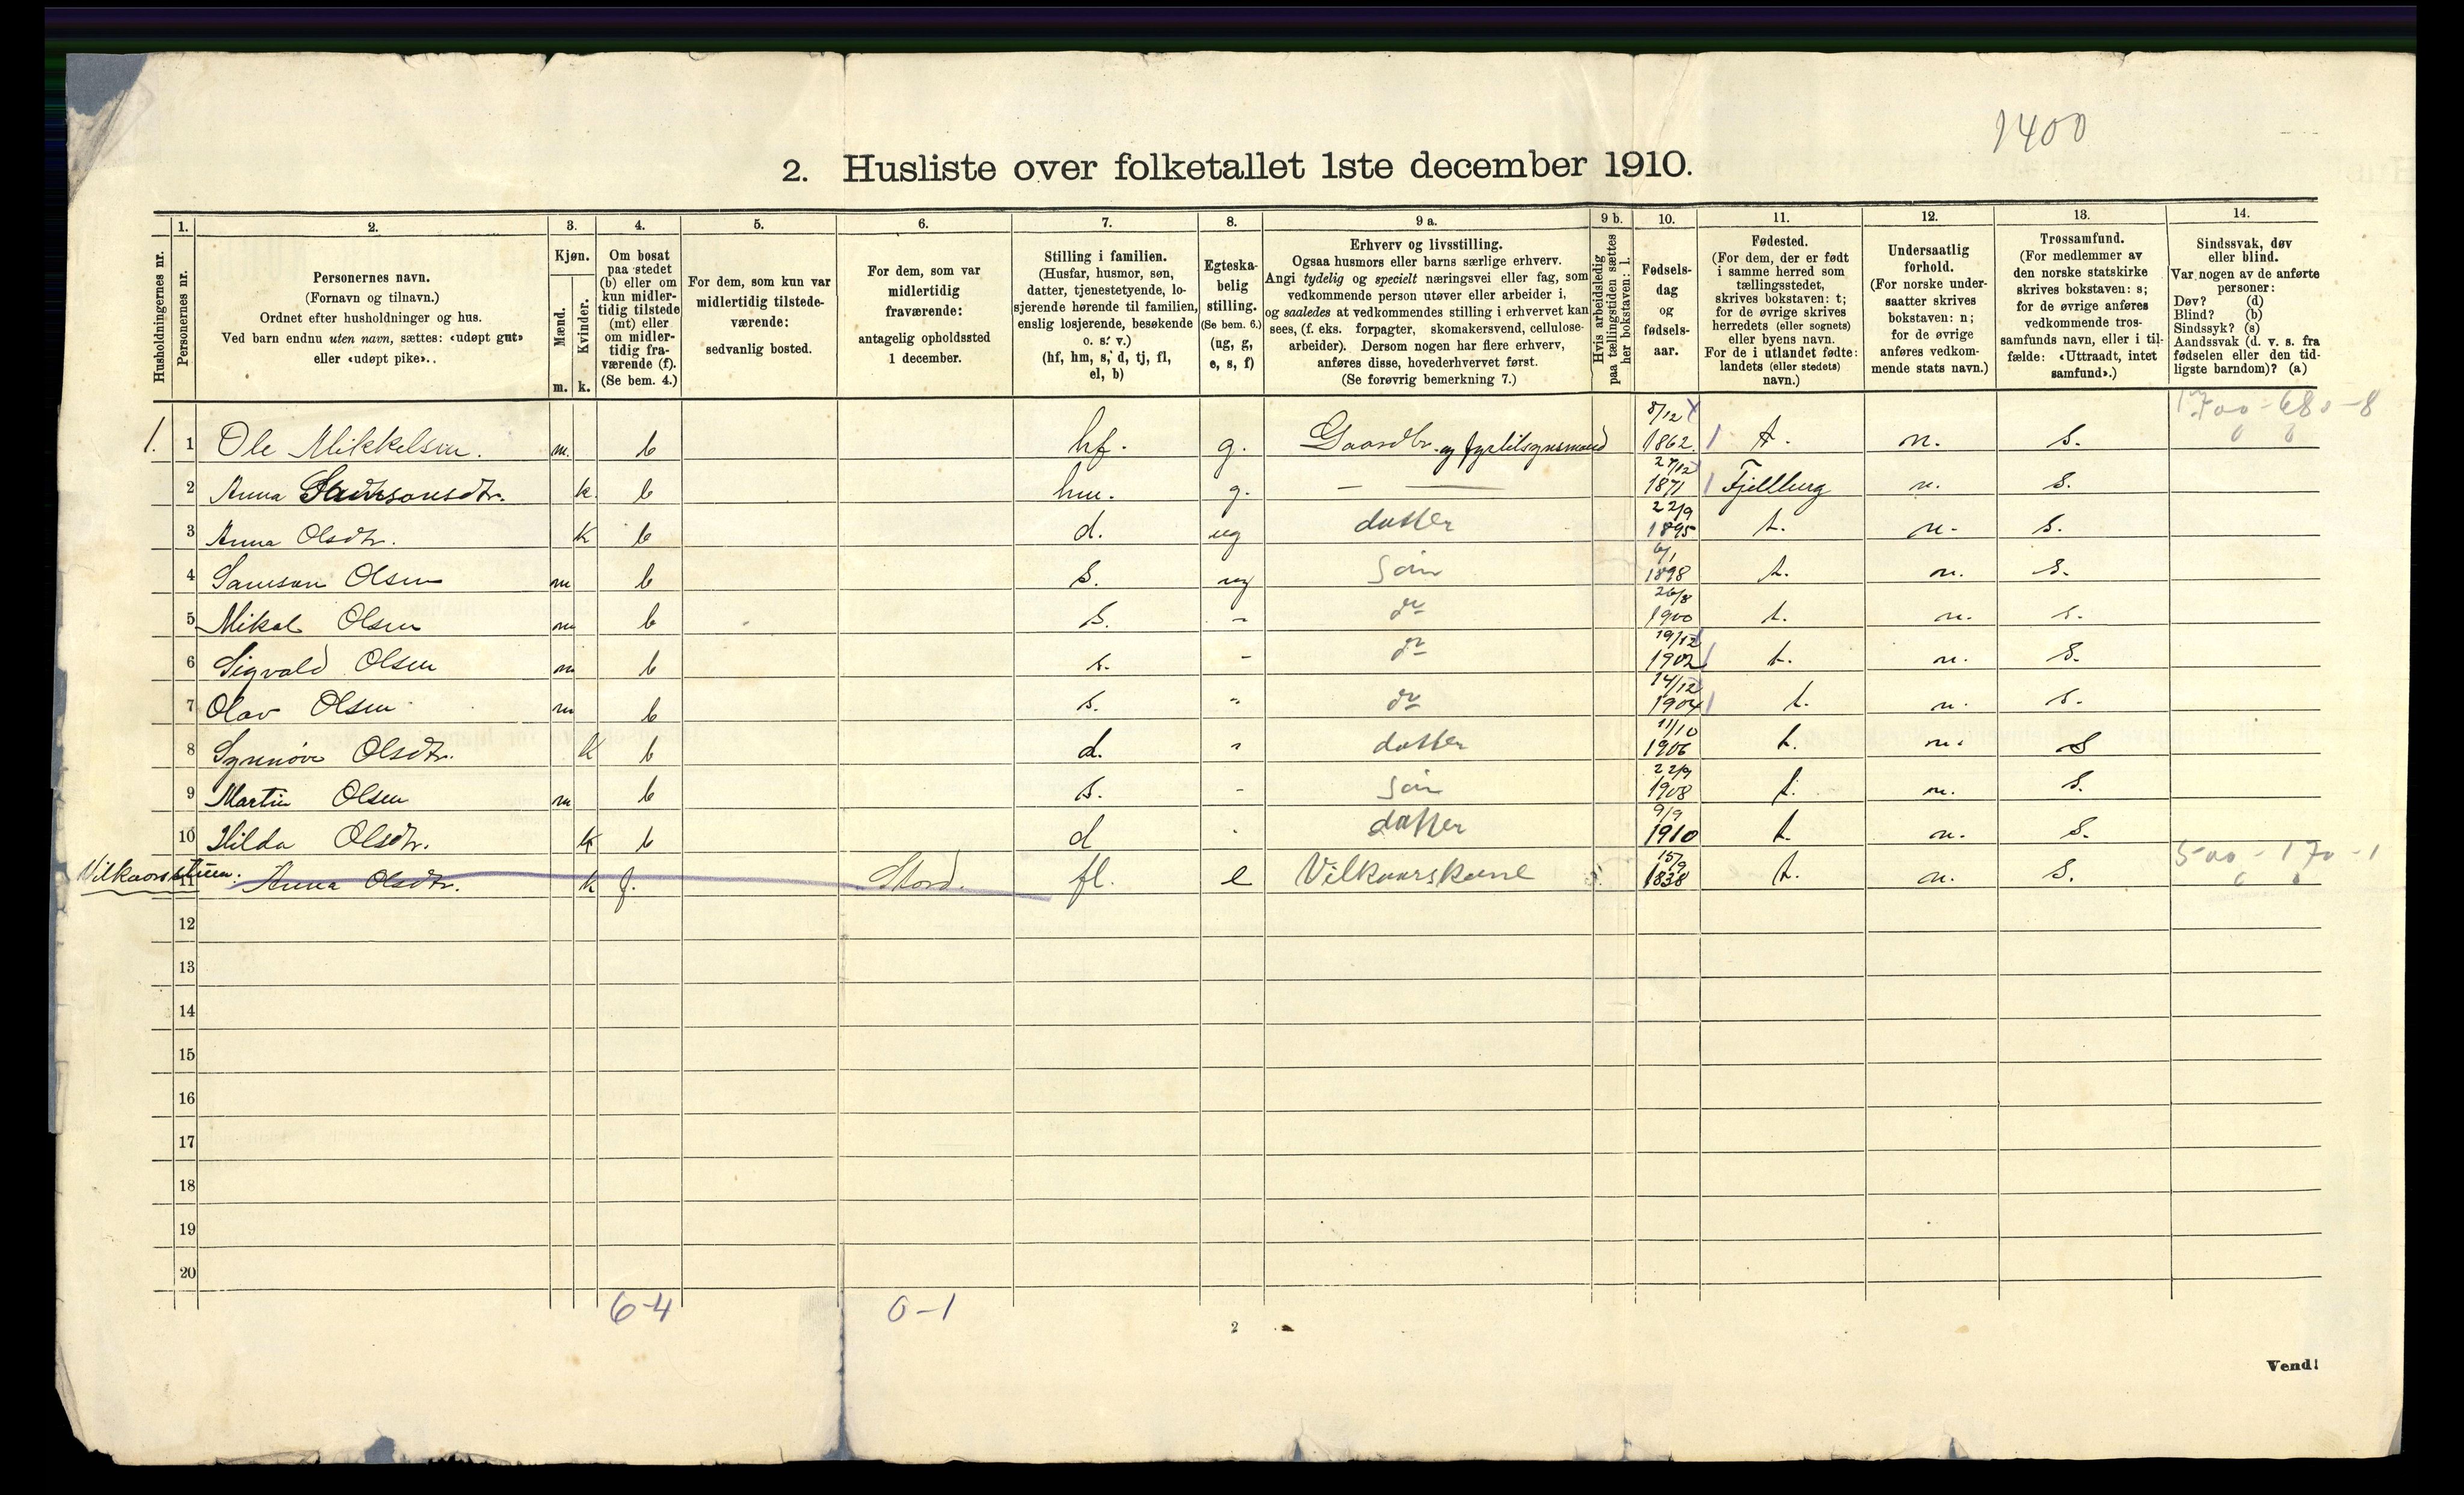 1400
2. Husliste over folketallet 1ste december 1910.
Husholdningernes nr.
1.
Personernes nr.
2.
Personernes navn.
(Fornavn og tilnavn.)
Ordnet efter husholdninger og hus.
Ved barn endnu uten navn, sættes: «udøpt gut»
eller «udøpt pike».
3.
Kjøn.
Mænd.
Kvinder.
m. k.
4.
Om bosat
paa stedet
(b) eller om
kun midler-
tidig tilstede
(mt) eller
om midler-
tidig fra-
værende (f).
(Se bem. 4.)
5.
For dem, som kun var
midlertidig tilstede-
værende:
sedvanlig bosted.
6.
For dem, som var
midlertidig
fraværende:
antagelig opholdssted
1 december.
7.
Stilling i familien.
(Husfar, husmor, søn,
datter, tjenestetyende, lo-
sjerende hørende til familien,
enslig losjerende, besøkende
o. s. v.)
(hf, hm, s, d, tj, fl,
el, b)
8.
Egteska-
belig
stilling.
(Se bem. 6.)
(ug, g,
e, s, f)
9 a.
Erhverv og livsstilling.
Ogsaa husmors eller barns særlige erhverv.
Angi tydelig og specielt næringsvei eller fag, som
vedkommende person utøver eller arbeider i,
og saaledes at vedkommendes stilling i erhvervet kan
sees, (f. eks. forpagter, skomakersvend, cellulose-
arbeider). Dersom nogen har flere erhverv,
anføres disse, hovederhvervet først.
(Se forøvrig bemerkning 7.)
9 b.
Hvis arbeidsledig
paa tællingstiden sættes
her bokstaven: l.
10.
Fødsels-
dag
og
fødsels-
aar.
11.
Fødested.
(For dem, der er født
i samme herred som
tællingsstedet,
skrives bokstaven: t;
for de øvrige skrives
herredets (eller sognets)
eller byens navn.
For de i utlandet fødte:
landets (eller stedets)
navn.)
12.
Undersaatlig
forhold.
(For norske under-
saatter skrives
bokstaven: n;
for de øvrige
anføres vedkom-
mende stats navn.)
13.
Trossamfund.
(For medlemmer av
den norske statskirke
skrives bokstaven: s;
for de øvrige anføres
vedkommende tros-
samfunds navn, eller i til-
fælde: «Uttraadt, intet
samfund».)
14.
Sindssvak, døv
eller blind.
Var nogen av de anførte
personer:
Døv? (d)
Blind? (b)
Sindssyk? (s)
Aandssvak (d. v. s. fra
fødselen eller den tid-
ligste barndom)? (a)
1700 - 680 - 8
0 0
1. 1 Ole Mikkelsen. m. b hf. g. Gaardbr. og fyrtilsynsmand 8/12 1862 1 t. n. s.
2 Anna Samsonsdtr. k. b hm. g. — — 27/12 1871 1 Fjellberg n. s.
3 Anna Olsdtr. k b d. ug datter 22/9 1895 t. n. s.
4 Samson Olsen m b s. ug søn 6/1 1898 t. n. s.
5 Mikal Olsen m b s. - do 26/8 1900 t. n. s.
6 Sigvald Olsen m b s. - do 19/12 1902 1 t. n. s.
7 Olav Olsen m b s. " do 14/12 1904 1 t. n. s.
8 Synnøve Olsdtr. k b d. " datter 11/10 1906 t. n. s
9 Martin Olsen m b s. - søn 22/9 1908 t. n. s.
10 Hilda Olsdtr. k b d . datter 9/9 1910 t. n. s.
500 - 170 - 1
0 0
Vilkaarsstuen. 11 Anna Olsdtr. k f. Stord. fl. e Vilkaarskone 15/9 1838 t. n. s.
12
13
14
15
16
17
18
19
20
6-4 0-1
2
Vend!